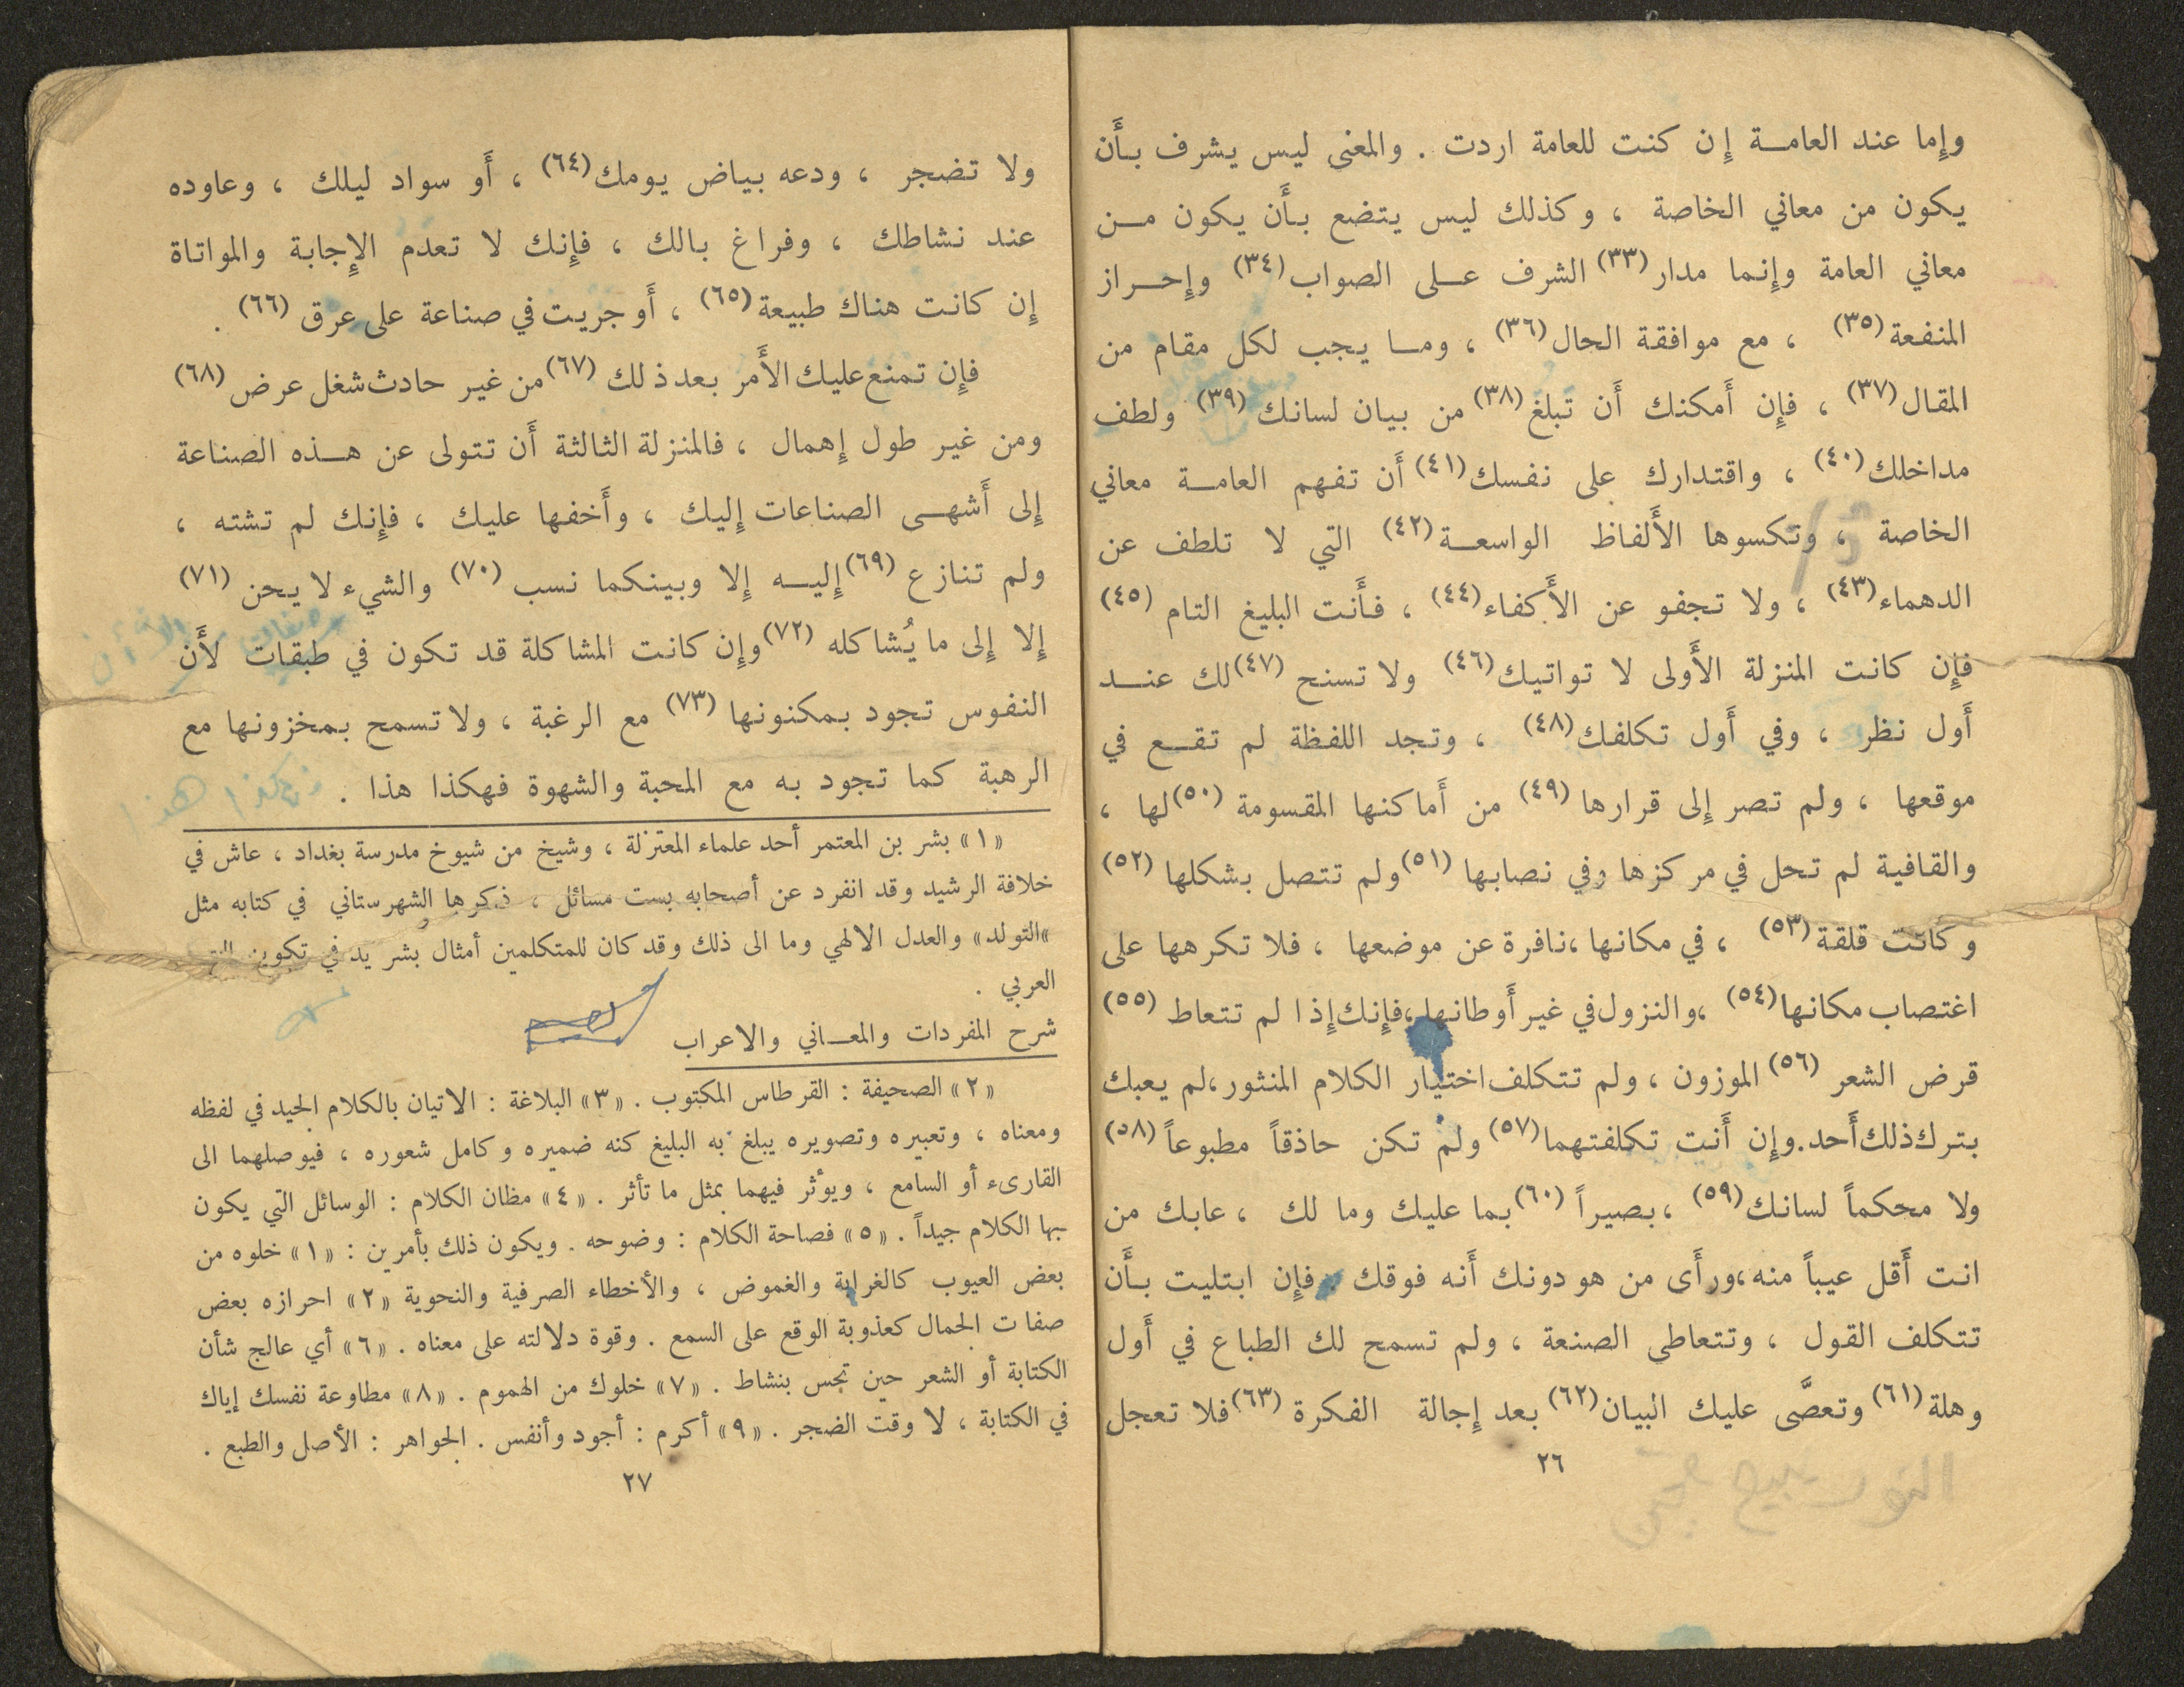 وإما عند العامة إن كنت للعامة اردت . والمعنى ليس يشرف بأن
يكون من معاني الخاصة ، وكذلك ليس يتضع بأن يكون من
معاني العامة وإنما مدار (٣٣) الشرف على الصواب (٣٤) وإحراز
المنفعة (٣٥) ، مع موافقة الحال (٣٦) ، وما يجب لكل مقام من
المقال (٣٧) ، فإن أمكنك أن تبلغ (٣٨) من بيان لسانك (٣٩) ولطف
مداخلك (٤٠) ، واقتدارك على نفسك (٤١) أن تفهم العامة معاني
الخاصة ، وتكسوها الألفاظ الواسعة (٤٢) التي لا تلطف عن
الدهماء (٤٣) ، ولا تجفو عن الأكفاء (٤٤) ، فأنت البليغ التام (٤٥)
فإن كانت المنزلة الأولى لا تواتيك (٤٦) ولا تسنح (٤٧) لك عند
أول نظر ، وفي أول تكلفك (٤٨) ، وتجد اللفظة لم تقع في
موقعها ، ولم تصر إلى قرارها (٤٩) من أماكنها المقسومة (٥٠) لها ،
والقافية لم تحل في مركزها وفي نصابها (٥١) ولم تتصل بشكلها (٥٢)
وكانت قلقة (٥٣) ، في مكانها ، نافرة عن موضعها ، فلا تكرهها على
اغتصاب مكانها (٥٤) ، والنزول في غير أوطانها ، فإنك إذا لم تتعاط (٥٥)
قرض الشعر (٥٦) الموزون ، ولم تتكلف اختيار الكلام المنثور ، لم يعبك
بترك ذلك أحد . وإن أنت تكلفتهما (٥٧) ولم تكن حاذقاً مطبوعاً (٥٨)
ولا محكماً لسانك (٥٩) ، بصيراً (٦٠) بما عليك وما لك ، عابك من
انت أقل عيباً منه ، ورأى من هو دونك أنه فوقك . فإن ابتليت بأن
تتكلف القول ، وتتعاطى الصنعة ، ولم تسمح لك الطباع في أول
وهلة (٦١) وتعصَّى عليك البيان (٦٢) بعد إجالة الفكرة (٦٣) فلا تعجل
٢٦
ولا تضجر ، ودعه بياض يومك (٦٤) ، أو سواد ليلك ، وعاوده
عند نشاطك ، وفراغ بالك ، فإنك لا تعدم الإجابة والمواتاة
إن كانت هناك طبيعة (٦٥) ، أو جريت في صناعة على عرق (٦٦) .
فإن تمنع عليك الأمر بعد ذلك (٦٧) من غير حادث شغل عرض (٦٨)
ومن غير طول إهمال ، فالمنزلة الثالثة أن تتولى عن هذه الصناعة
إلى أشهى الصناعات إليك ، وأخفها عليك ، فإنك لم تشته ،
ولم تنازع (٦٩) إليه إلا وبينكما نسب (٧٠) والشيء لا يحن (٧١)
إلا إلى ما يُشاكله (٧٢) وإن كانت المشاكلة قد تكون في طبقات لأن
النفوس تجود بمكنونها (٧٣) مع الرغبة ، ولا تسمح بمخزونها مع
الرهبة كما تجود به مع المحبة والشهوة فهكذا هذا .
«١» بشر بن المعتمر أحد علماء المعتزلة ، وشيخ من شيوخ مدرسة بغداد ، عاش في
خلافة الرشيد وقد انفرد عن أصحابه بست مسائل ، ذكرها الشهرستاني في كتابه مثل
«التولد» والعدل الالهي وما الى ذلك وقد كان للمتكلمين أمثال بشر يد في تكوين
العربي .
شرح المفردات والمعاني والاعراب
«٢» الصحيفة : القرطاس المكتوب . «٣» البلاغة : الاتيان بالكلام الجيد في لفظه
ومعناه ، وتعبيره وتصويره يبلغ به البليغ كنه ضميره وكامل شعوره ، فيوصلهما الى
القارىء أو السامع ، ويؤثر فيهما بمثل ما تأثر . «٤» مظان الكلام : الوسائل التي يكون
بها الكلام جيداً . «٥» فصاحة الكلام : وضوحه . ويكون ذلك بأمرين : «١» خلوه من
بعض العيوب كالغرابة والغموض ، والأخطاء الصرفية والنحوية «٢» احرازه بعض
صفات الجمال كعذوبة الوقع على السمع . وقوة دلالته على معناه . «٦» أي عالج شأن
الكتابة أو الشعر حين تجس بنشاط . «٧» خلوك من الهموم . «٨» مطاوعة نفسك إياك
في الكتابة ، لا وقت الضجر . «٩» أكرم : أجود وأنفس . الجواهر : الأصل والطبع .
٢٧